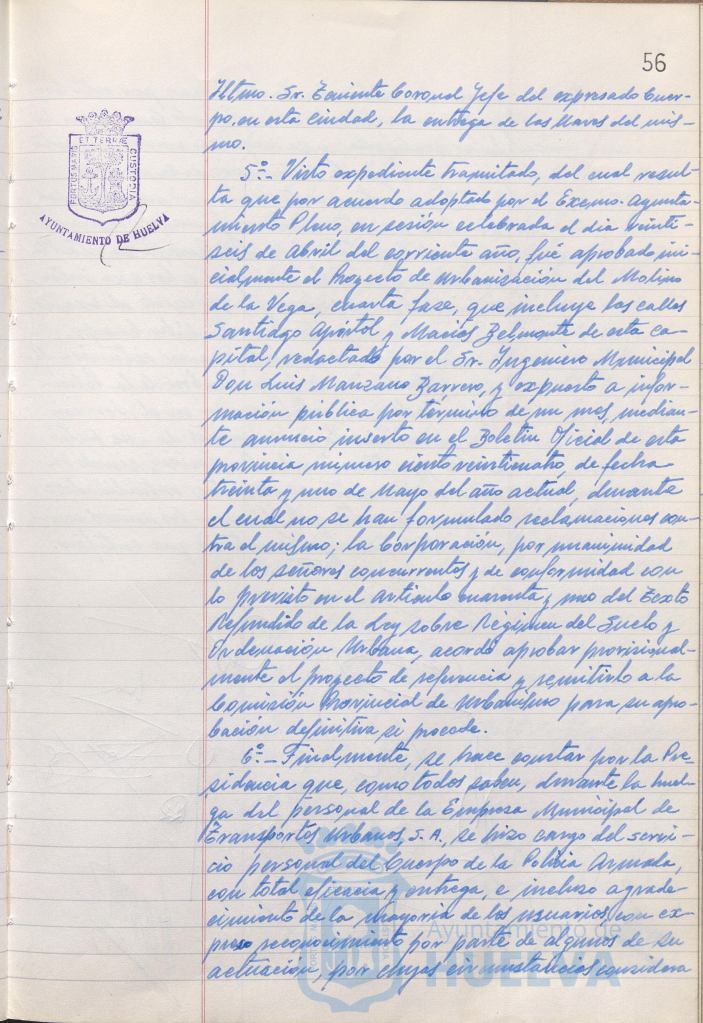 56
PORTUS MARIS
ET TERRAE
CUSTODIA
AYUNTAMIENTO DE HUELVA
Iltmo. Sr. Teniente Coronel Jefe del expresado Cuer-
po, en esta ciudad, la entrega de las llaves del mis-
mo.
5º.- Visto expediente tramitado, del cual resul-
ta que por acuerdo adoptado por el Excmo. Ayunta-
miento Pleno, en sesión celebrada el día veinti-
seis de Abril del corriente año, fué aprobado ini-
cialmente el Proyecto de Urbanización del Molino
de la Vega, cuarta fase, que incluye las calles
Santiago Apóstol y Macías Belmonte de esta ca-
pital, redactado por el Sr. Ingeniero Municipal
Don Luis Manzano Barrero, y expuesto a infor-
mación pública por término de un mes, median-
te anuncio inserto en el Boletín Oficial de esta
provincia número ciento veinticuatro, de fecha
treinta y uno de Mayo del año actual, durante
el cual no se han formulado reclamaciones con-
tra el mismo; la Corporación, por unanimidad
de los señores concurrentes y de conformidad con
lo previsto en el artículo cuarenta y uno del Texto
Refundido de la Ley sobre Régimen del Suelo y
Ordenación Urbana, acordó aprobar provisional-
mente el proyecto de referencia y remitirlo a la
Comisión Provincial de Urbanismo para su apro-
bación definitiva si procede.
6º.- Finalmente, se hace constar por la Pre-
sidencia que, como todos saben, durante la huel-
ga del personal de la Empresa Municipal de
Transportes Urbanos, S.A., se hizo cargo del servi-
cio personal del Cuerpo de la Policía Armada,
con total eficacia y entrega, e incluso agrade-
cimiento de la mayoría de los usuarios, con ex-
preso reconocimiento por parte de algunos de su
actuación, por cuyas circunstancias considera
Ayuntamiento de
HUELVA